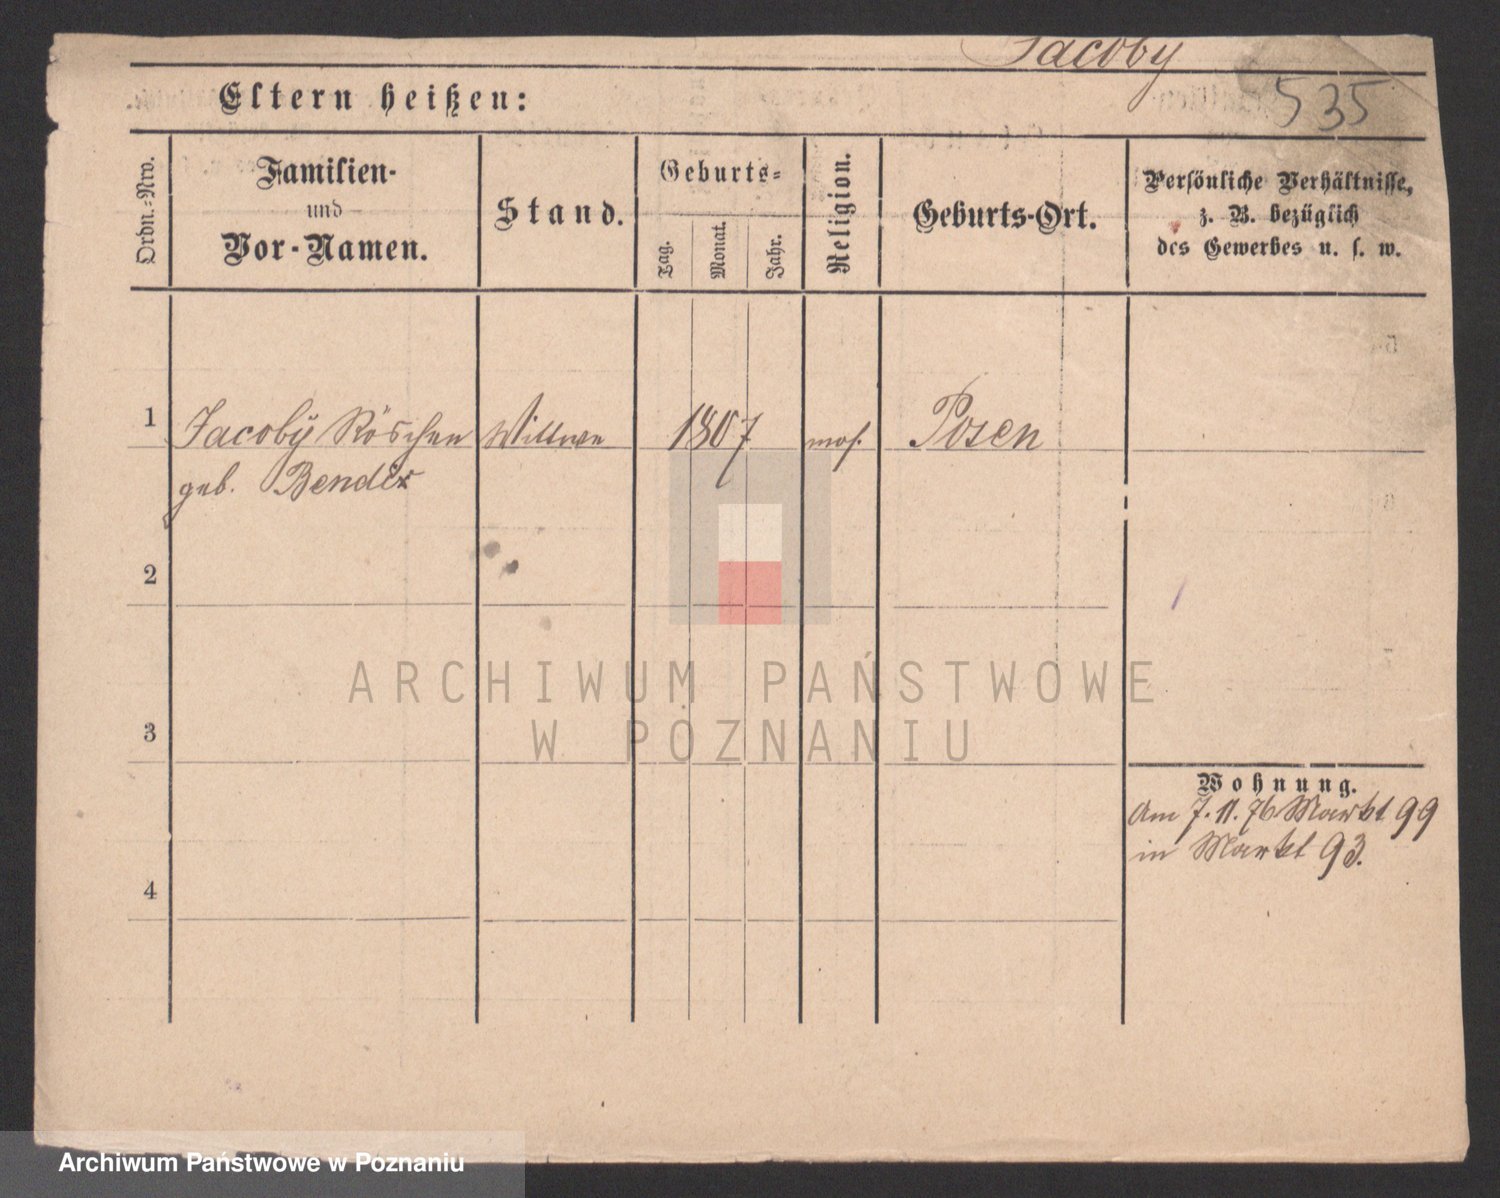 Jacoby
535
Eltern heißen:
Ordn.-Nro.
Familien-
und
Vor-Namen.
Stand.
Geburts-
Tag.
Monat.
Jahr.
Religion.
Geburts-Ort.
Persönliche Verhältnisse,
z. B. bezüglich
des Gewerbes u. s. w.
1 Jacoby Röschen Wittwe 1807 mos. Posen
geb. Bendix
2
3
4
Wohnung.
Am 7.11.76 Markt 99
in Markt 93.
ARCHIWUM PAŃSTWOWE
W POZNANIU
Archiwum Państwowe w Poznaniu